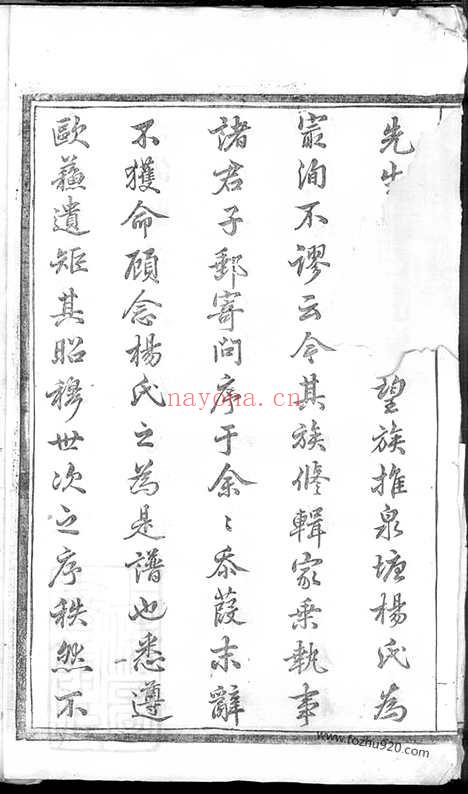 先生
望族推泉塘楊氏為
最洵不謬云今其族修輯家乘執事
諸君子郵寄問序于余〻忝葭末辭
不獲命顧念楊氏之為是譜也悉遵
歐蘇遺矩其昭穆世次之序秩然不
nayona.cn
www.fozhu920.com